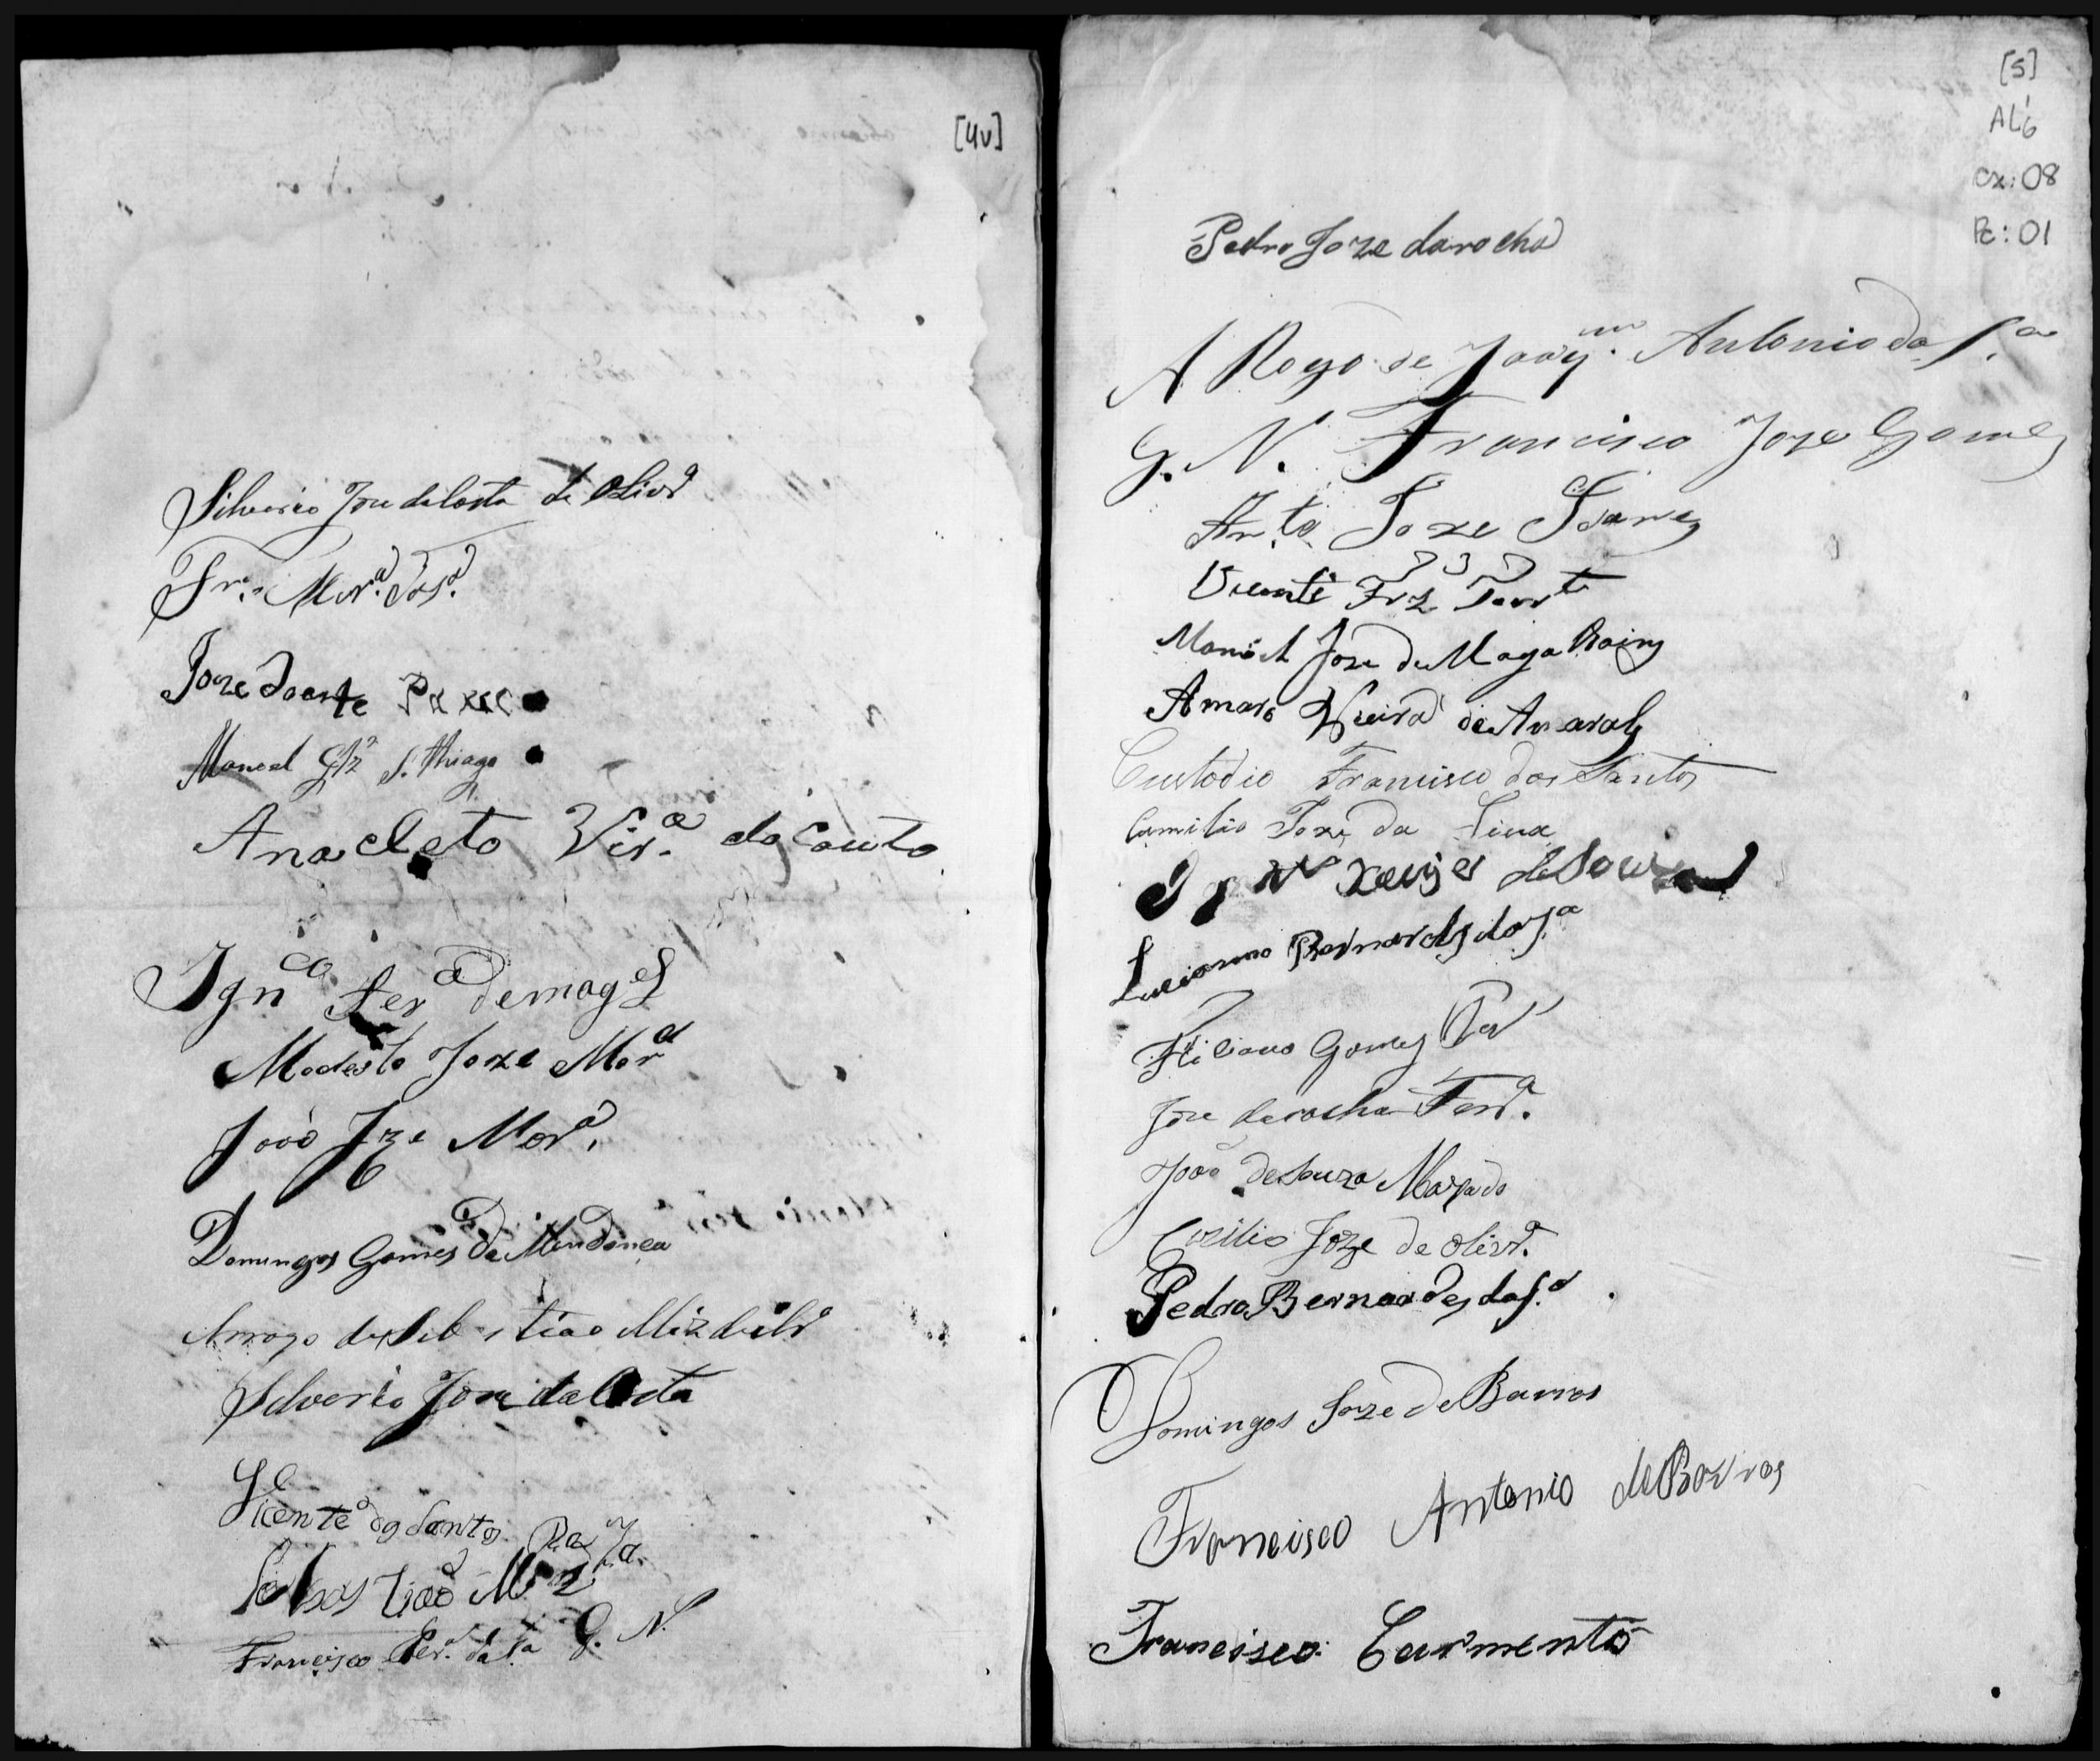 [4v]
Silverio Joze da Costa de Olivrª
Frº Morª
Joze Doarte
Manoel Glz S. Thiago
Anacleto Virª do Couto
Ignco Ferª de mages
Modesto Joze Morª
Joaõ Jze Morª
Domingos Gomes de Mendonca
Arrogo de Sebastiao Miz
Silverio Joze da Costa
Vicente dos Santos
Sebastiaõ Miz
Francisco Perª da Sª G. N.
[5]
AL.6
cx: 08
Pc: 01
Pedro Joze da rocha
A Rogo de Joaqm Antonio da Sª
G. N. Francisco Joze Gomes
Anto Joze Soares
Vicente Frz
Manoel Joze de Magalhains
Amaro Vieira de Amaral
Custodio Francisco dos Santos
Camilio Joze da
Xavier de Souza
Lucianno Bernardes da Sª
Filiciano Gomes
Joze da rocha Ferrª
Joaõ de Souza Maxado
Cecilio Joze de Olivrª
Pedro Bernardes da Sª
Domingos Joze de Barros
Francisco Antonio de Barros
Francisco Carmento